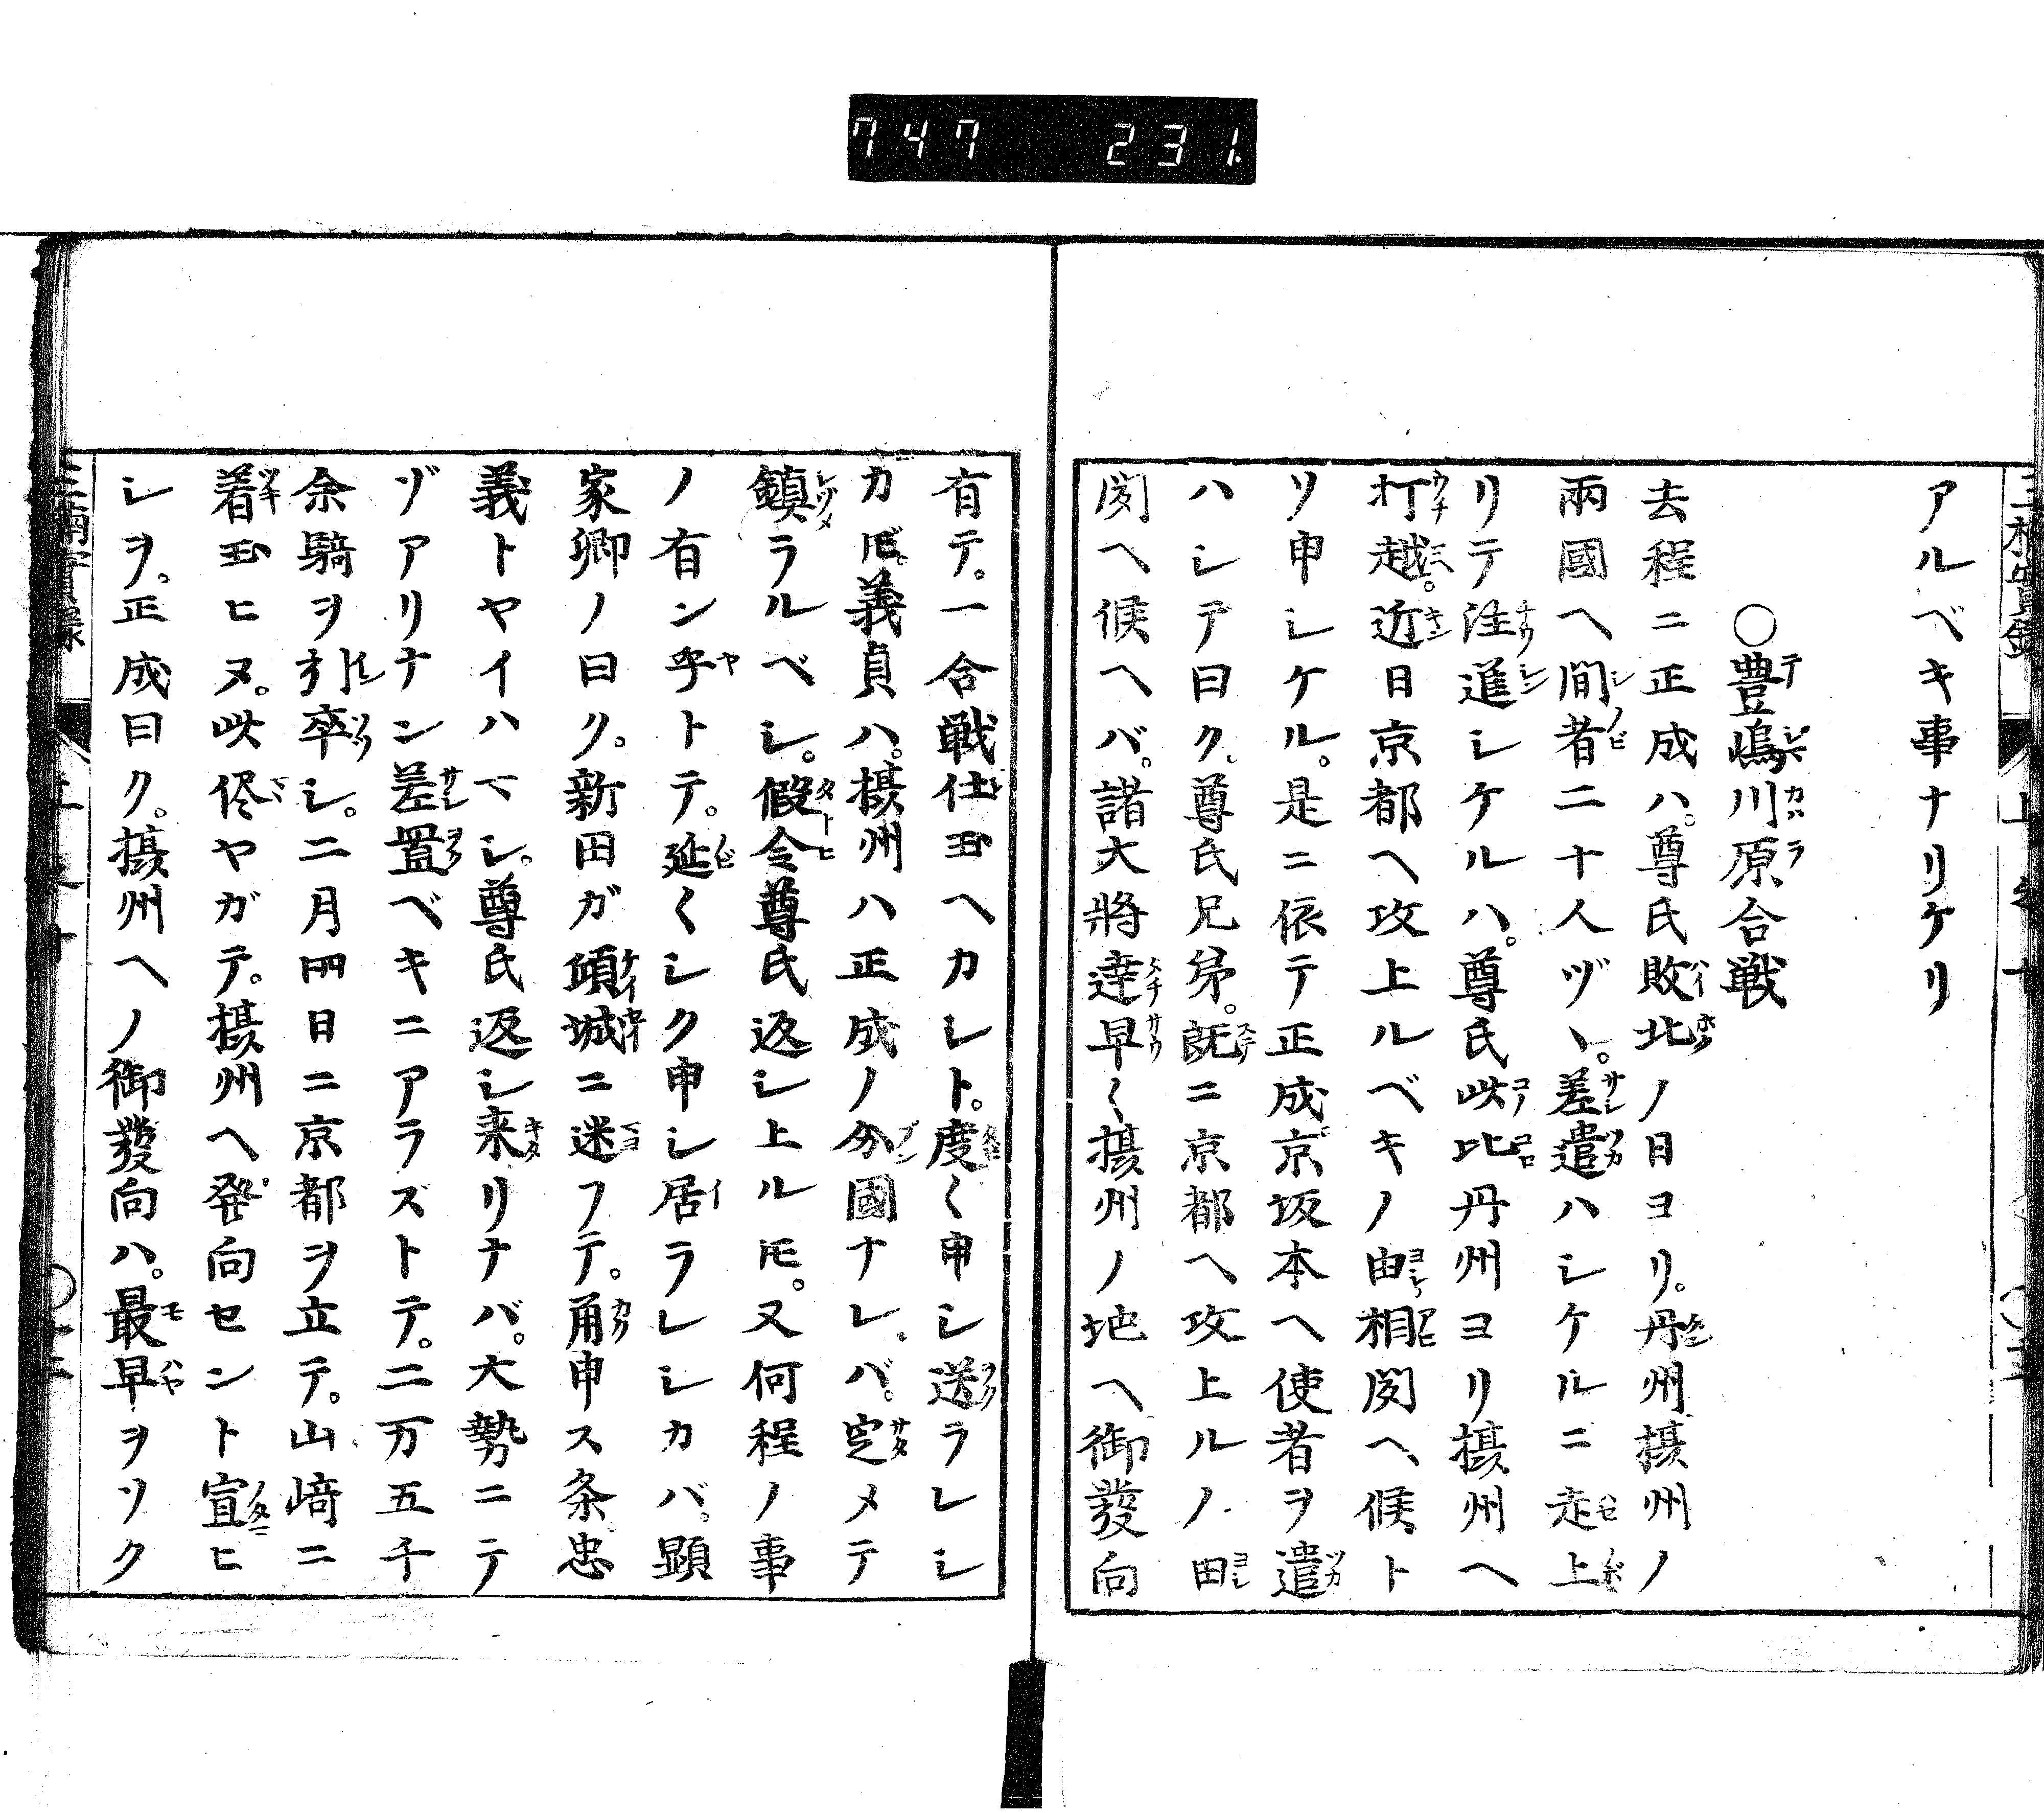 747 231.
アルベキ事ナリケリ
○豊嶋川原合戦
去程ニ正成ハ。尊氏敗北ノ日ヨリ。丹州摂州ノ
兩國ヘ間者二十人ヅヽ。差遣ハシケルニ走上
リテ注進シケルハ。尊氏此比丹州ヨリ摂州ヘ
打越。近日京都ヘ攻上ルベキノ由相聞ヘ候ト
ソ申シケル。是ニ依テ正成京坂本ヘ使者ヲ遣
ハシテ曰ク。尊氏兄弟。既ニ京都ヘ攻上ルノ由
聞ヘ候ヘバ。諸大將達早〱摂州ノ地ヘ御發向
有テ。一合戦仕玉ヘカレト。度〱申シ送ラレシ
カ𪜈。義貞ハ。摂州ハ正成ノ分國ナレバ。定メテ
鎮ラルベシ。假令尊氏返シ上ル𪜈。又何程ノ事
ノ有ン乎トテ。延〱シク申シ居ラレシカバ。顕
家卿ノ曰ク。新田ガ傾城ニ迷フテ。角申ス条忠
義トヤイハマシ。尊氏返シ来リナバ。大勢ニテ
ゾアリナン差置ベキニアラズトテ。二万五千
余騎ヲ引卒シ。二月四日ニ京都ヲ立テ。山﨑ニ
着玉ヒヌ。此侭ヤガテ。摂州ヘ発向セント宣ヒ
シヲ。正成曰ク。摂州ヘノ御發向ハ。最早ヲソク